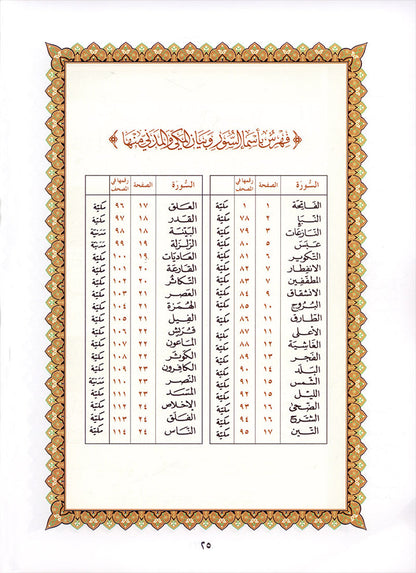 ﴿ فهرس بأسماء السور وبيان المكي والمدني منها ﴾
السورة الصفحة رقمها في المصحف
الفاتحة ١ ١ مكية
النبأ ٢ ٧٨ مكية
النازعات ٣ ٧٩ مكية
عبس ٥ ٨٠ مكية
التكوير ٦ ٨١ مكية
الانفطار ٧ ٨٢ مكية
المطففين ٧ ٨٣ مكية
الانشقاق ٩ ٨٤ مكية
البروج ١٠ ٨٥ مكية
الطارق ١١ ٨٦ مكية
الأعلى ١١ ٨٧ مكية
الغاشية ١٢ ٨٨ مكية
الفجر ١٣ ٨٩ مكية
البلد ١٤ ٩٠ مكية
الشمس ١٥ ٩١ مكية
الليل ١٥ ٩٢ مكية
الضحى ١٦ ٩٣ مكية
الشرح ١٦ ٩٤ مكية
التين ١٧ ٩٥ مكية
السورة الصفحة رقمها في المصحف
العلق ١٧ ٩٦ مكية
القدر ١٨ ٩٧ مكية
البينة ١٨ ٩٨ مدنية
الزلزلة ١٩ ٩٩ مدنية
العاديات ١٩ ١٠٠ مكية
القارعة ٢٠ ١٠١ مكية
التكاثر ٢٠ ١٠٢ مكية
العصر ٢١ ١٠٣ مكية
الهمزة ٢١ ١٠٤ مكية
الفيل ٢١ ١٠٥ مكية
قريش ٢٢ ١٠٦ مكية
الماعون ٢٢ ١٠٧ مكية
الكوثر ٢٢ ١٠٨ مكية
الكافرون ٢٣ ١٠٩ مكية
النصر ٢٣ ١١٠ مدنية
المسد ٢٣ ١١١ مكية
الإخلاص ٢٤ ١١٢ مكية
الفلق ٢٤ ١١٣ مكية
الناس ٢٤ ١١٤ مكية
٢٥